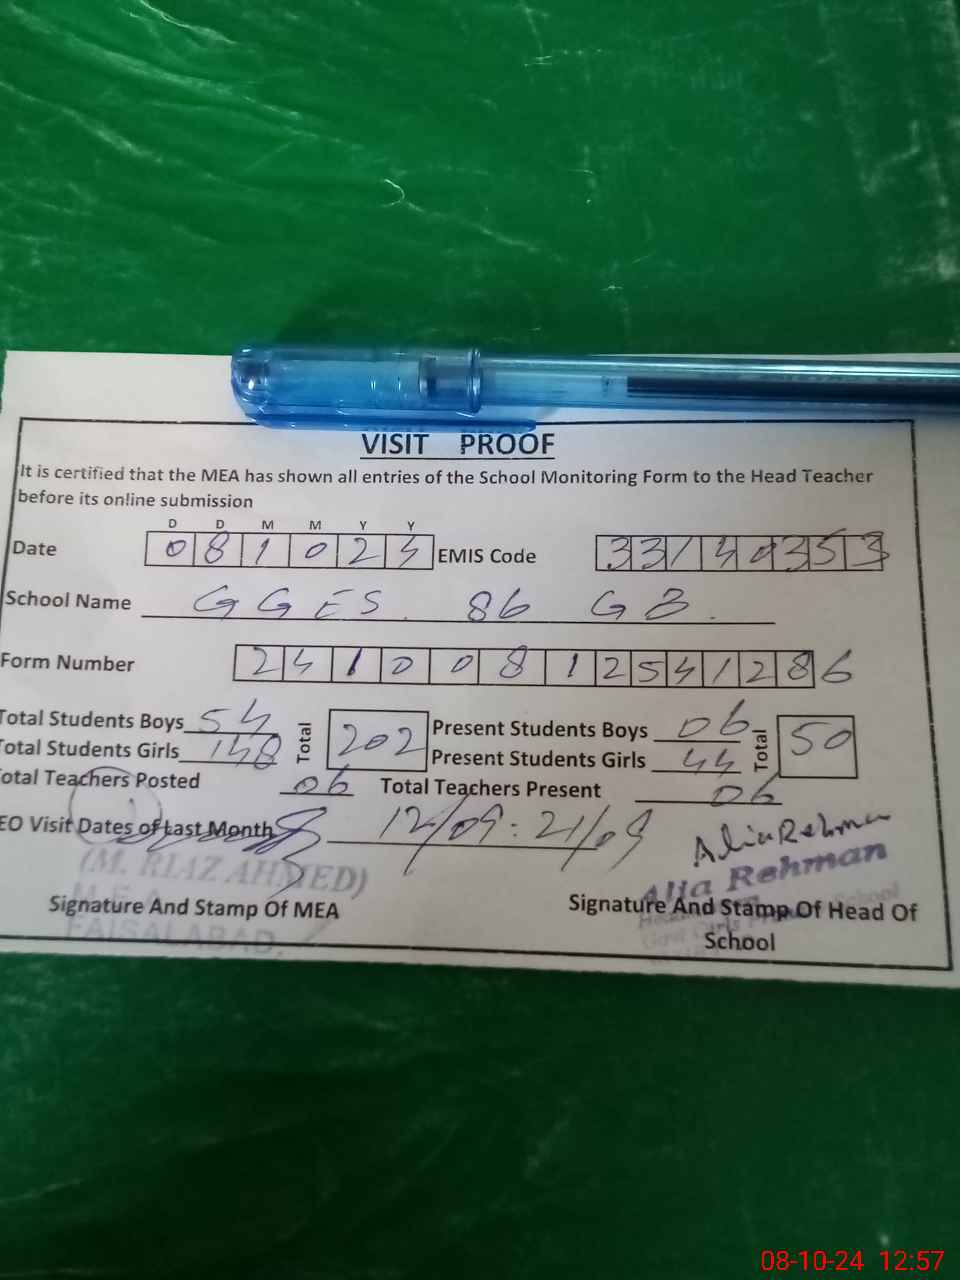 VISIT PROOF
It is certified that the MEA has shown all entries of the School Monitoring Form to the Head Teacher
before its online submission
D D M M Y Y
Date 081024 EMIS Code 33140353
School Name GGES. 86 GB.
Form Number 24100812541286
Total Students Boys 54 Total 202 Present Students Boys 06 Total 50
Total Students Girls 148 Present Students Girls 44
Total Teachers Posted 06 Total Teachers Present 06
EO Visit Dates of Last Month 12/09: 21/09
Alia Rehman
(M. RIAZ AHMED) Alia Rehman
M.E.A
Signature And Stamp Of MEA Signature And Stamp Of Head Of
School
FAISALABAD.
08-10-24 12:57